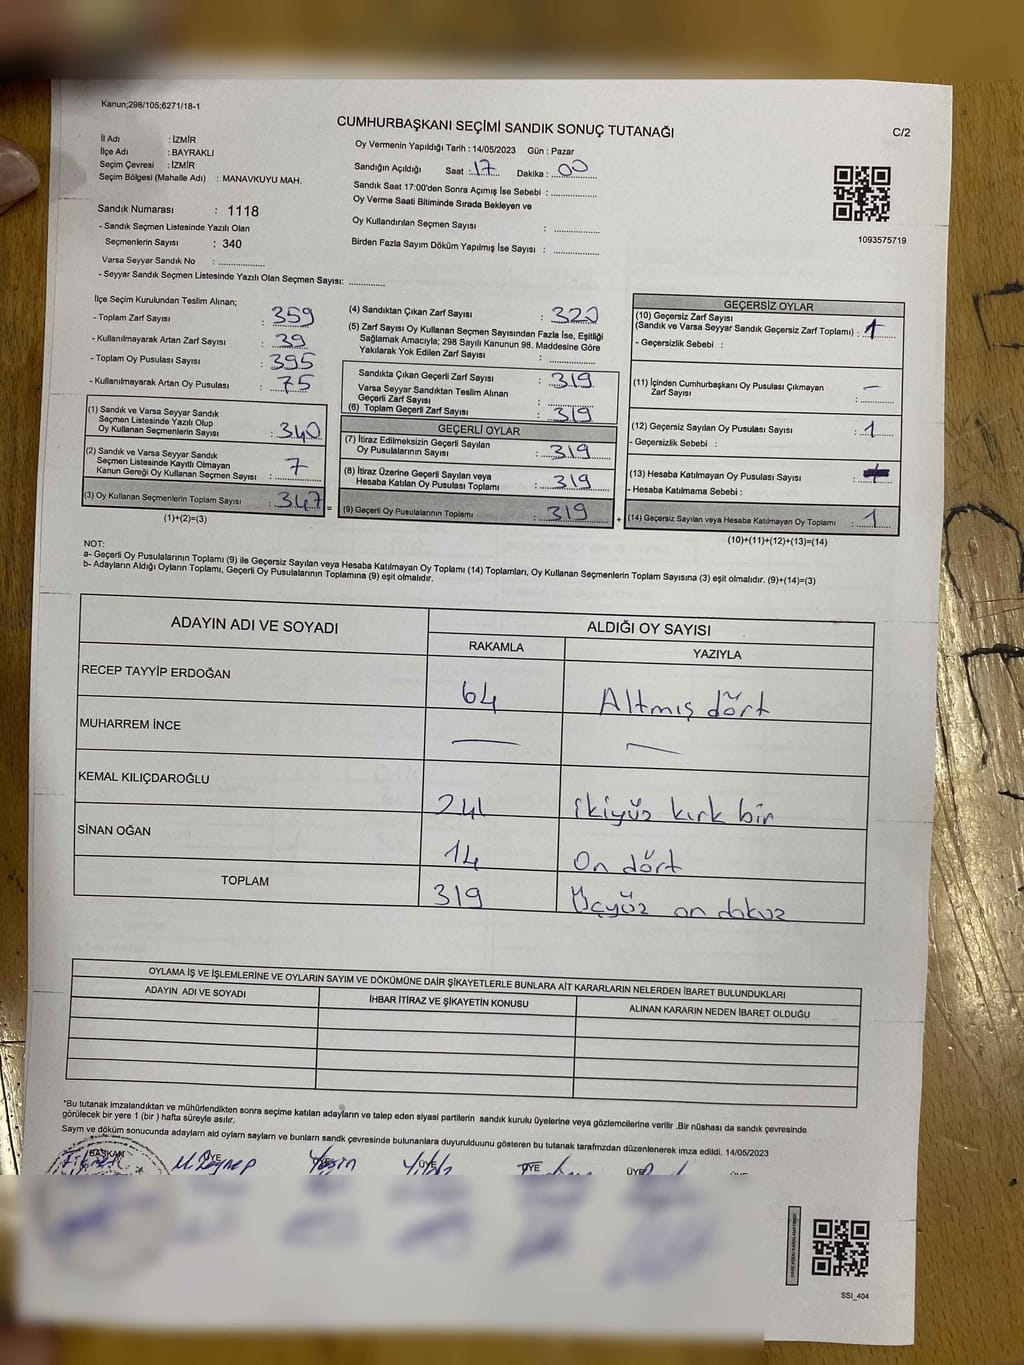 Kanun;298/105;6271/18-1
CUMHURBAŞKANI SEÇİMİ SANDIK SONUÇ TUTANAĞI
C/2
İl Adı : İZMİR
İlçe Adı : BAYRAKLI
Seçim Çevresi : İZMİR
Seçim Bölgesi (Mahalle Adı) : MANAVKUYU MAH.
Sandık Numarası : 1118
- Sandık Seçmen Listesinde Yazılı Olan
Seçmenlerin Sayısı : 340
Varsa Seyyar Sandık No :
- Seyyar Sandık Seçmen Listesinde Yazılı Olan Seçmen Sayısı:
Oy Vermenin Yapıldığı Tarih : 14/05/2023 Gün : Pazar
Sandığın Açıldığı Saat : 17 Dakika : 00
Sandık Saat 17:00'den Sonra Açımış İse Sebebi :
Oy Verme Saati Bitiminde Sırada Bekleyen ve
Oy Kullandırılan Seçmen Sayısı :
Birden Fazla Sayım Döküm Yapılmış İse Sayısı :
1093575719
İlçe Seçim Kurulundan Teslim Alınan;
- Toplam Zarf Sayısı : 359
- Kullanılmayarak Artan Zarf Sayısı : 39
- Toplam Oy Pusulası Sayısı : 395
- Kullanılmayarak Artan Oy Pusulası : 75
(1) Sandık ve Varsa Seyyar Sandık
Seçmen Listesinde Yazılı Olup
Oy Kullanan Seçmenlerin Sayısı : 340
(2) Sandık ve Varsa Seyyar Sandık
Seçmen Listesinde Kayıtlı Olmayan
Kanun Gereği Oy Kullanan Seçmen Sayısı : 7
(3) Oy Kullanan Seçmenlerin Toplam Sayısı : 347
(1)+(2)=(3)
(4) Sandıktan Çıkan Zarf Sayısı : 320
(5) Zarf Sayısı Oy Kullanan Seçmen Sayısından Fazla İse, Eşitliği
Sağlamak Amacıyla; 298 Sayılı Kanunun 98. Maddesine Göre
Yakılarak Yok Edilen Zarf Sayısı :
Sandıkta Çıkan Geçerli Zarf Sayısı : 319
Varsa Seyyar Sandıktan Teslim Alınan
Geçerli Zarf Sayısı :
(6) Toplam Geçerli Zarf Sayısı : 319
GEÇERLİ OYLAR
(7) İtiraz Edilmeksizin Geçerli Sayılan
Oy Pusulalarının Sayısı : 319
(8) İtiraz Üzerine Geçerli Sayılan veya
Hesaba Katılan Oy Pusulası Toplamı : 319
= (9) Geçerli Oy Pusulalarının Toplamı : 319
GEÇERSİZ OYLAR
(10) Geçersiz Zarf Sayısı
(Sandık ve Varsa Seyyar Sandık Geçersiz Zarf Toplamı) : 1
- Geçersizlik Sebebi :
(11) İçinden Cumhurbaşkanı Oy Pusulası Çıkmayan
Zarf Sayısı : —
(12) Geçersiz Sayılan Oy Pusulası Sayısı : 1
- Geçersizlik Sebebi :
(13) Hesaba Katılmayan Oy Pusulası Sayısı :
- Hesaba Katılmama Sebebi :
+ (14) Geçersiz Sayılan veya Hesaba Katılmayan Oy Toplamı : 1
(10)+(11)+(12)+(13)=(14)
NOT:
a- Geçerli Oy Pusulalarının Toplamı (9) ile Geçersiz Sayılan veya Hesaba Katılmayan Oy Toplamı (14) Toplamları, Oy Kullanan Seçmenlerin Toplam Sayısına (3) eşit olmalıdır. (9)+(14)=(3)
b- Adayların Aldığı Oyların Toplamı, Geçerli Oy Pusulalarının Toplamına (9) eşit olmalıdır.
ADAYIN ADI VE SOYADI ALDIĞI OY SAYISI
RAKAMLA YAZIYLA
RECEP TAYYİP ERDOĞAN 64 Altmış dört
MUHARREM İNCE — —
KEMAL KILIÇDAROĞLU 241 ikiyüz kırk bir
SİNAN OĞAN 14 On dört
TOPLAM 319 Üçyüz on dokuz
OYLAMA İŞ VE İŞLEMLERİNE VE OYLARIN SAYIM VE DÖKÜMÜNE DAİR ŞİKAYETLERLE BUNLARA AİT KARARLARIN NELERDEN İBARET BULUNDUKLARI
ADAYIN ADI VE SOYADI İHBAR İTİRAZ VE ŞİKAYETİN KONUSU ALINAN KARARIN NEDEN İBARET OLDUĞU
*Bu tutanak imzalandıktan ve mühürlendikten sonra seçime katılan adayların ve talep eden siyasi partilerin sandık kurulu üyelerine veya gözlemcilerine verilir .Bir nüshası da sandık çevresinde
görülecek bir yere 1 (bir ) hafta süreyle asılır.
Sayım ve döküm sonucunda adayların ald oyların sayları ve bunların sandk çevresinde bulunanlara duyurulduunu gösteren bu tutanak tarafmzdan düzenlenerek imza edildi. 14/05/2023
BAŞKAN ÜYE ÜYE ÜYE ÜYE ÜYE
SSI_404